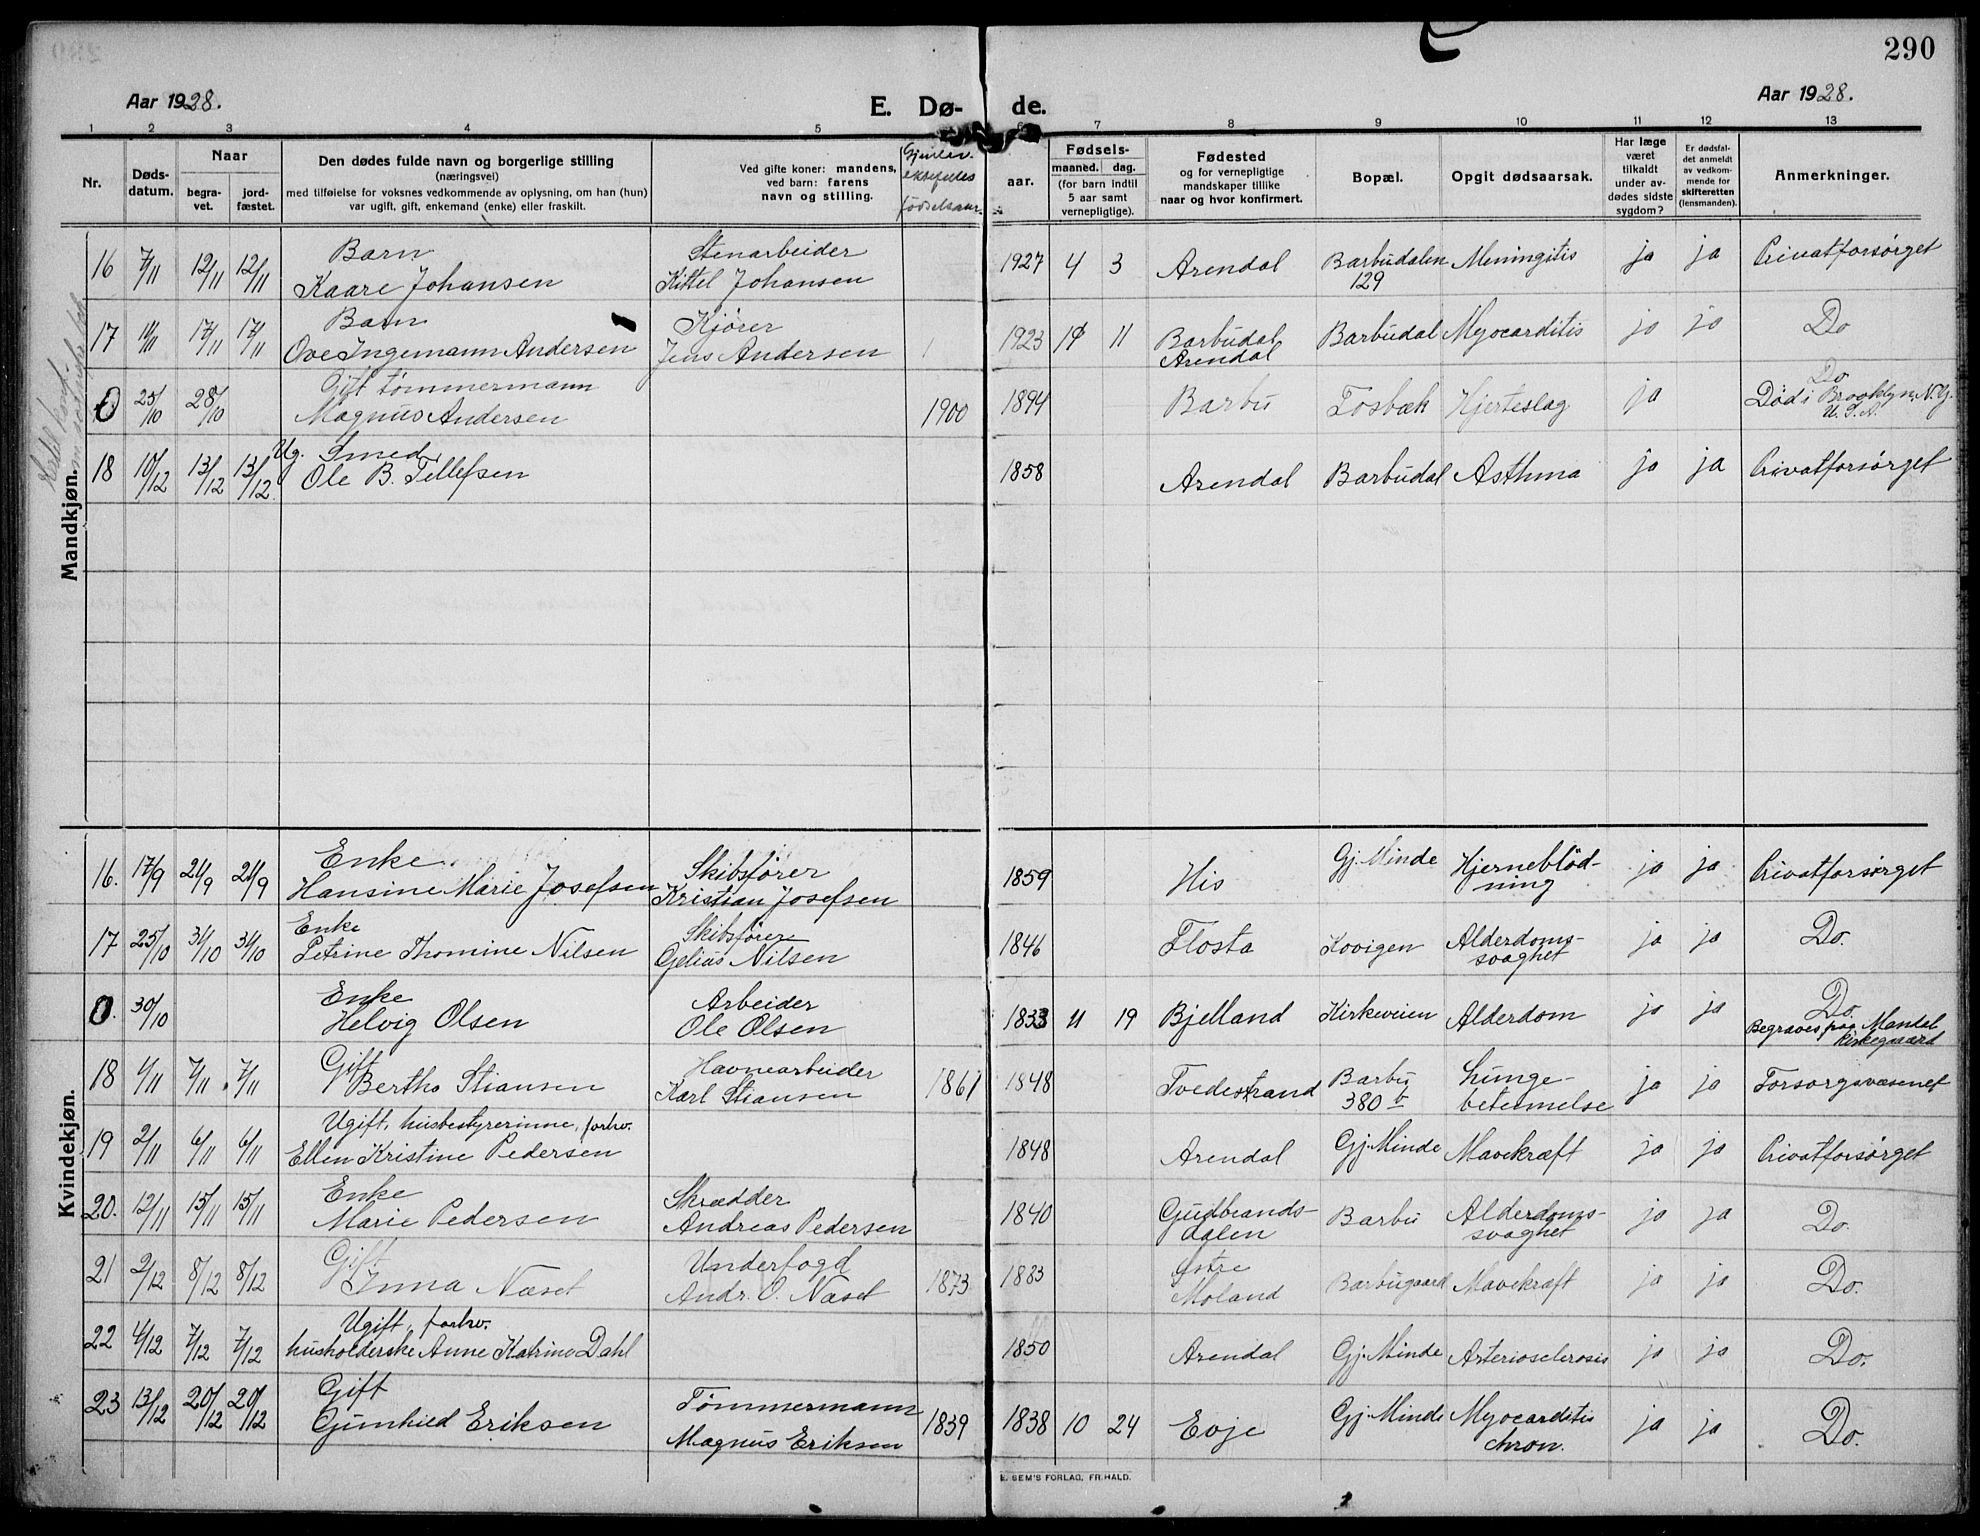 290
Aar 1928.
E. Dø-
de.
Aar 1928.
1 2 3 4 5 6 7 8 9 10 11 12 13
Nr.
Døds-
datum.
Naar
begra-
vet.
jord-
fæstet.
Den dødes fulde navn og borgerlige stilling
(næringsvei)
med tilføielse for voksnes vedkommende av oplysning, om han (hun)
var ugift, gift, enkemand (enke) eller fraskilt.
Ved gifte koner: mandens,
ved barn: farens
navn og stilling.
Gjenlev.
ektefelles
fødselsaar.
aar.
Fødsels-
maaned. dag.
(for barn indtil
5 aar samt
vernepligtige).
Fødested
og for vernepligtige
mandskaper tillike
naar og hvor konfirmert.
Bopæl.
Opgit dødsaarsak.
Har læge
været
tilkaldt
under av-
dødes sidste
sygdom?
Er dødsfal-
det anmeldt
av vedkom-
mende for
skifteretten
(lensmanden).
Anmerkninger.
Mandkjøn.
Barn Stenarbeider
16 7/11 12/11 12/11 Kaare Johansen Kittel Johansen 1927 4 3 Arendal Barbudalen 129 Meningitis ja ja Privatforsørget
Barn Kjører
17 11/11 17/11 17/11 Ove Ingemann Andersen Jens Andersen 1923 11 Barbudal Arendal Barbudal Myocarditis ja ja Do
Gift tømmermann
0 25/10 28/10 Magnus Andersen 1900 1894 Barbu Tosbæk Hjerteslag ja Do Død i Brooklyn, N.Y. U.S.A.
Ug. Smed
18 10/12 13/12 13/12 Ole B. Tellefsen 1858 Arendal Barbudal Asthma ja ja Privatforsørget
Kvindekjøn.
Enke Skibsfører
16. 17/9 21/9 21/9 Hansine Marie Josefsen Kristian Josefsen 1859 His Gj. Minde Hjerneblød-
ning ja ja Privatforsørget
Enke Skibsfører
17 25/10 31/10 31/10 Petrine Thomine Nilsen Gjelius Nilsen 1846 Flosta Kovigen Alderdoms-
svaghet ja ja Do.
Enke Arbeider
0. 30/10 Helvig Olsen Ole Olsen 1833 11 19 Bjelland Kirkeveien Alderdom ja ja Do.
Begraves paa Mandal
kirkegaard
Gift Havnearbeider
18 4/11 7/11 7/11 Bertha Stiansen Karl Stiansen 1861 1848 Tvedestrand Barbu
380 b Lunge-
betennelse ja ja Forsorgsvæsenet
Ugift, husbestyrerinne, forhv.
19 2/11 6/11 6/11 Ellen Kristine Pedersen 1848 Arendal Gj. Minde Mavekræft ja ja Privatforsørget
Enke Skrædder
20. 12/11 15/11 15/11 Marie Pedersen Andreas Pedersen 1840 Gudbrands-
dalen Barbu Alderdoms-
svaghet ja ja Do.
Gift Underfogd
21 2/12 8/12 8/12 Inna Næset Andr. O. Næset 1873 1883 Østre
Moland Barbugaard Mavekræft ja ja Do.
Ugift, forhv.
22 4/12 7/12 7/12 husholderske Anne Katrine Dahl 1850 Arendal Gj. Minde Arteriosclerosis ja ja Do.
Gift Tømmermann
23 13/12 20/12 20/12 Gunhild Eriksen Magnus Eriksen 1839 1838 10 24 Evje Gj. Minde Myocarditis
chron. ja ja Do.
E. SEM'S FORLAG, FR.HALD.